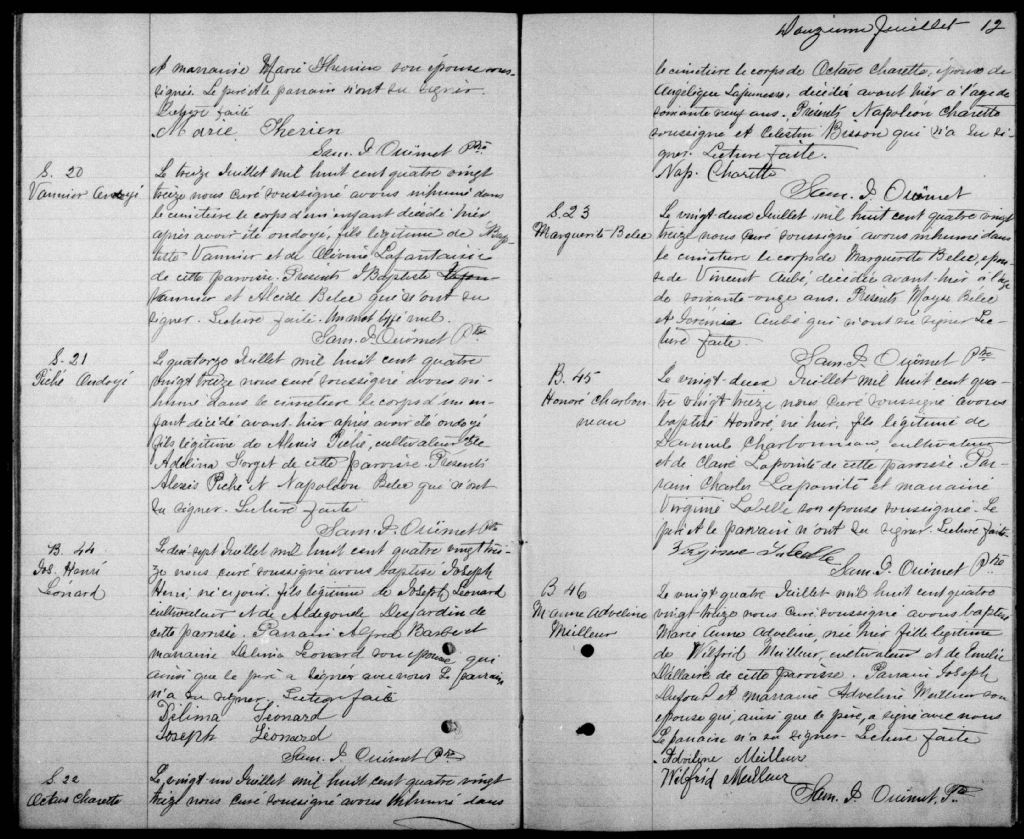 et marraine Marie Therien son épouse sous-
signée. Le père et le parrain n'ont su signer.
Lecture faite
Marie Therien
Sam. J. Ouimet Ptre
S. 20
Vannier Ondoyé
Le treize Juillet mil huit cent quatre vingt
treize nous curé soussigné avons inhumé dans
le cimetière le corps d'un enfant décédé hier
après avoir été ondoyé, fils légitime de J Bap
tiste Vannier et de Olivine Lafontaine
de cette paroisse. Présents J Baptiste
Vannier et Alcide Belec qui n'ont su
signer. Lecture faite. Un mot biffé nul.
Sam. J. Ouimet Ptre
S. 21
Piché Ondoyé
Le quatorze Juillet mil huit cent quatre
vingt treize nous curé soussigné avons in-
humé dans le cimetière le corps d'un en-
fant décédé avant hier après avoir été ondoyé
fils légitime de Alexis Piché, cultivateur et de
Adelina Forget de cette paroisse Présents
Alexis Piché et Napoléon Belec qui n'ont
su signer. Lecture faite
Sam. J. Ouimet Ptre
B. 44
Jos. Henri
Léonard
Le dix sept Juillet mil huit cent quatre vingt trei-
ze nous curé soussigné avons baptisé Joseph
Henri né ce jour, fils légitime de Joseph Léonard
cultivateur et de Aldegonde Desjardins de
cette paroisse. Parrain Alfred Barbe et
marraine Delima Leonard son épouse qui
ainsi que le père a signé avec nous Le parrain
n'a su signer. Lecture faite
Délima Léonard
Joseph Léonard
Sam. J. Ouimet Ptre
S. 22
Octave Charette
Le vingt un Juillet mil huit cent quatre vingt
treize nous curé soussigné avons inhumé dans
Douzieme feuillet 12
le cimetière le corps de Octave Charette, époux de
Angélique Lajeunesse, décédé avant hier à l'age de
soixante neuf ans. Présents Napoléon Charette
soussigné et Celestin Bisson qui n'a su si-
gner. Lecture faite.
Nap. Charette
Sam. J. Ouimet
S. 23
Marguerite Belec
Le vingt deux Juillet mil huit cent quatre vingt
treize nous curé soussigné avons inhumé dans
le cimetière le corps de Marguerite Belec, épou-
se de Vincent Aubé, décédée avant hier à l'age
de soixante-onze ans. Présents Moyse Bélec
et Jérémie Aubé qui n'ont su signer Lec-
ture faite.
Sam. J. Ouimet Ptre
B. 45
Honoré Charbon
neau
Le vingt-deux Juillet mil huit cent qua-
tre vingt treize nous curé soussigné avons
baptisé Honoré, né hier, fils légitime de
Samuel Charbonneau cultivateur
et de Claire Lapointe de cette paroisse. Par-
rain Charles Lapointe et marraine
Virginie Labelle son épouse soussignée. Le
père et le parrain n'ont su signer. Lecture faite.
Virginie Labelle
Sam. J. Ouimet Ptre
B 46
M Anne Adveline
Meilleur
Le vingt quatre Juillet mil huit cent quatre
vingt treize nous curé soussigné avons baptisé
Marie Anne Adveline, née hier fille légitime
de Wilfrid Meilleur, cultivateur et de Emelie
Dallaire de cette paroisse. Parrain Joseph
Dufour et marraine Adveline Meilleur son
épouse qui, ainsi que le père, a signé avec nous
Le parrain n'a su signer. Lecture faite
Advelyne Meilleur
Wilfrid Meilleur
Sam. J. Ouimet, Ptre